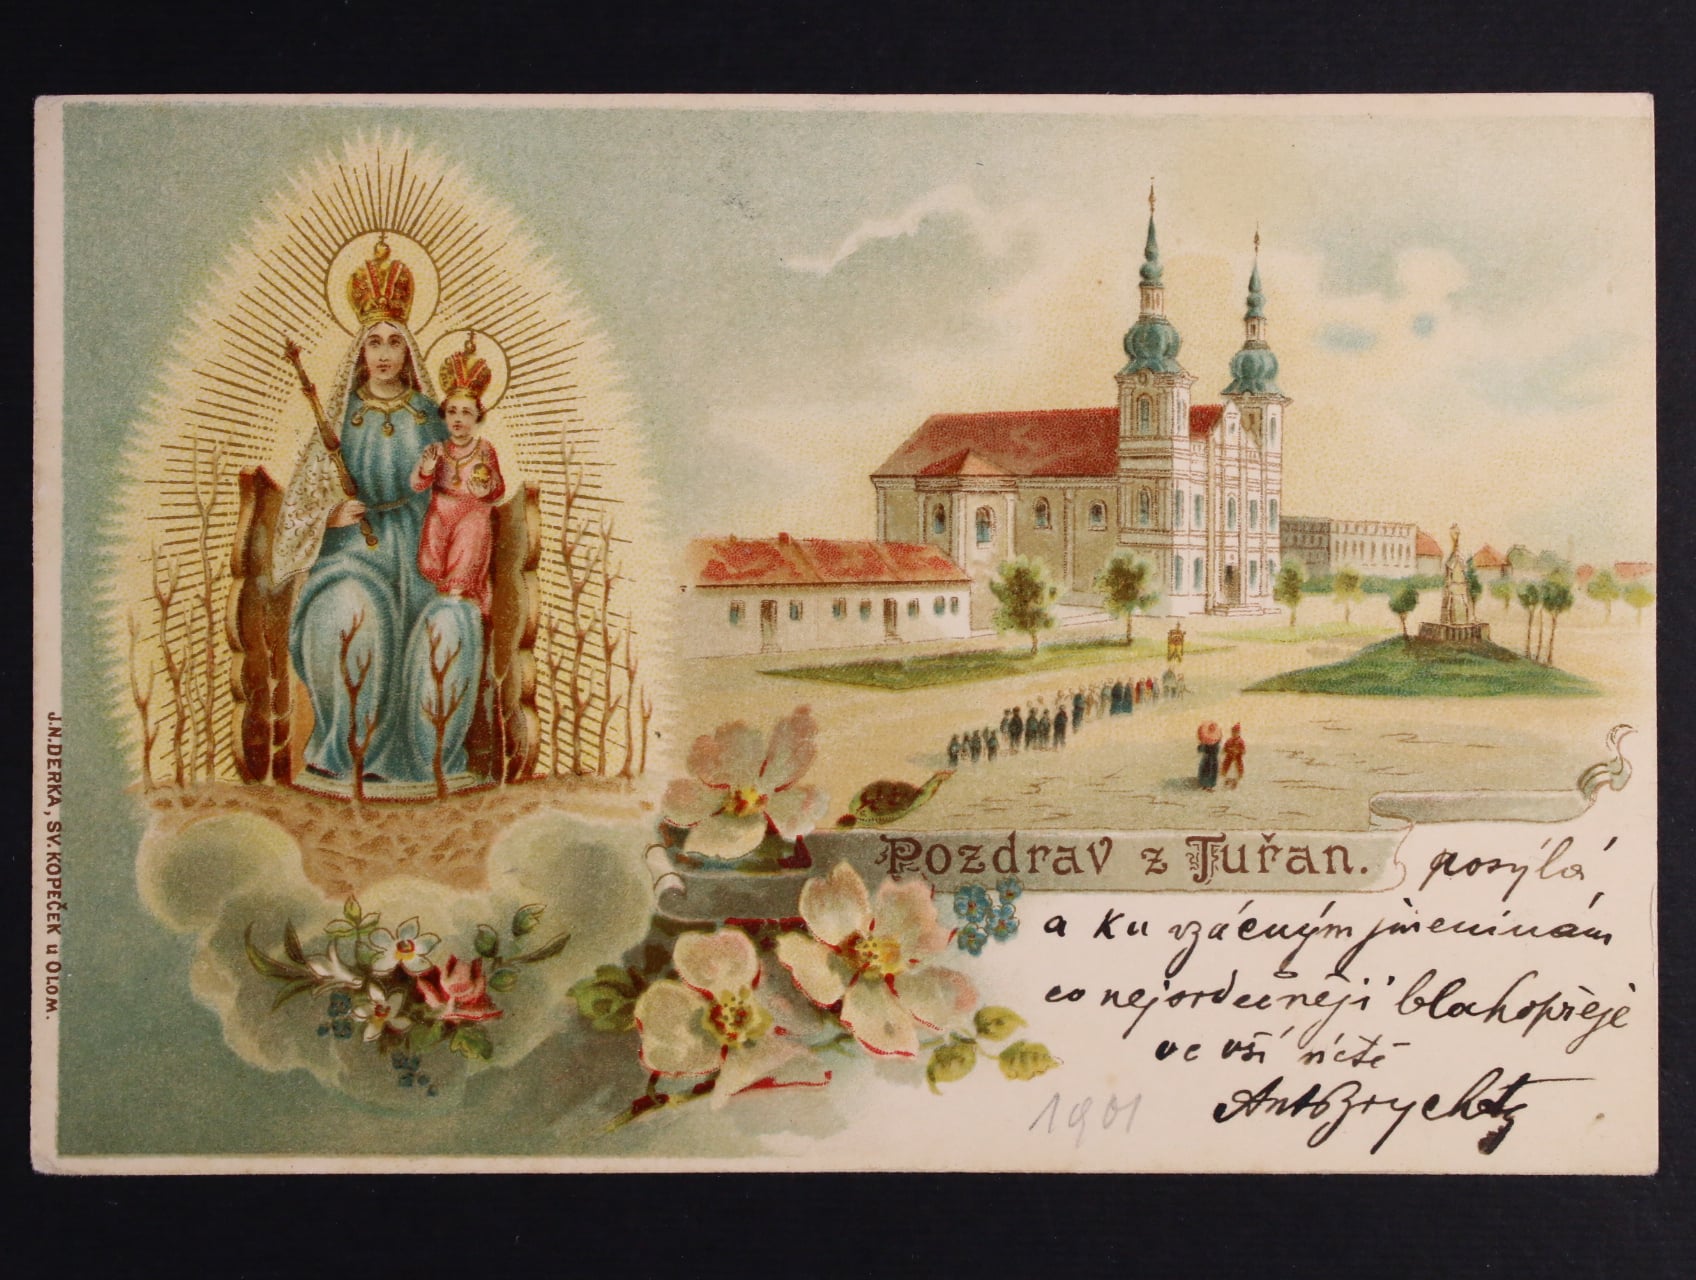 Pozdrav z Tuřan.
posýlá
a ku vzácným jmeninám
co nejsrdečněji blahopřeje
ve vší úctě
Ant
1901
J.N.DERKA, SV. KOPEČEK u OLOM.